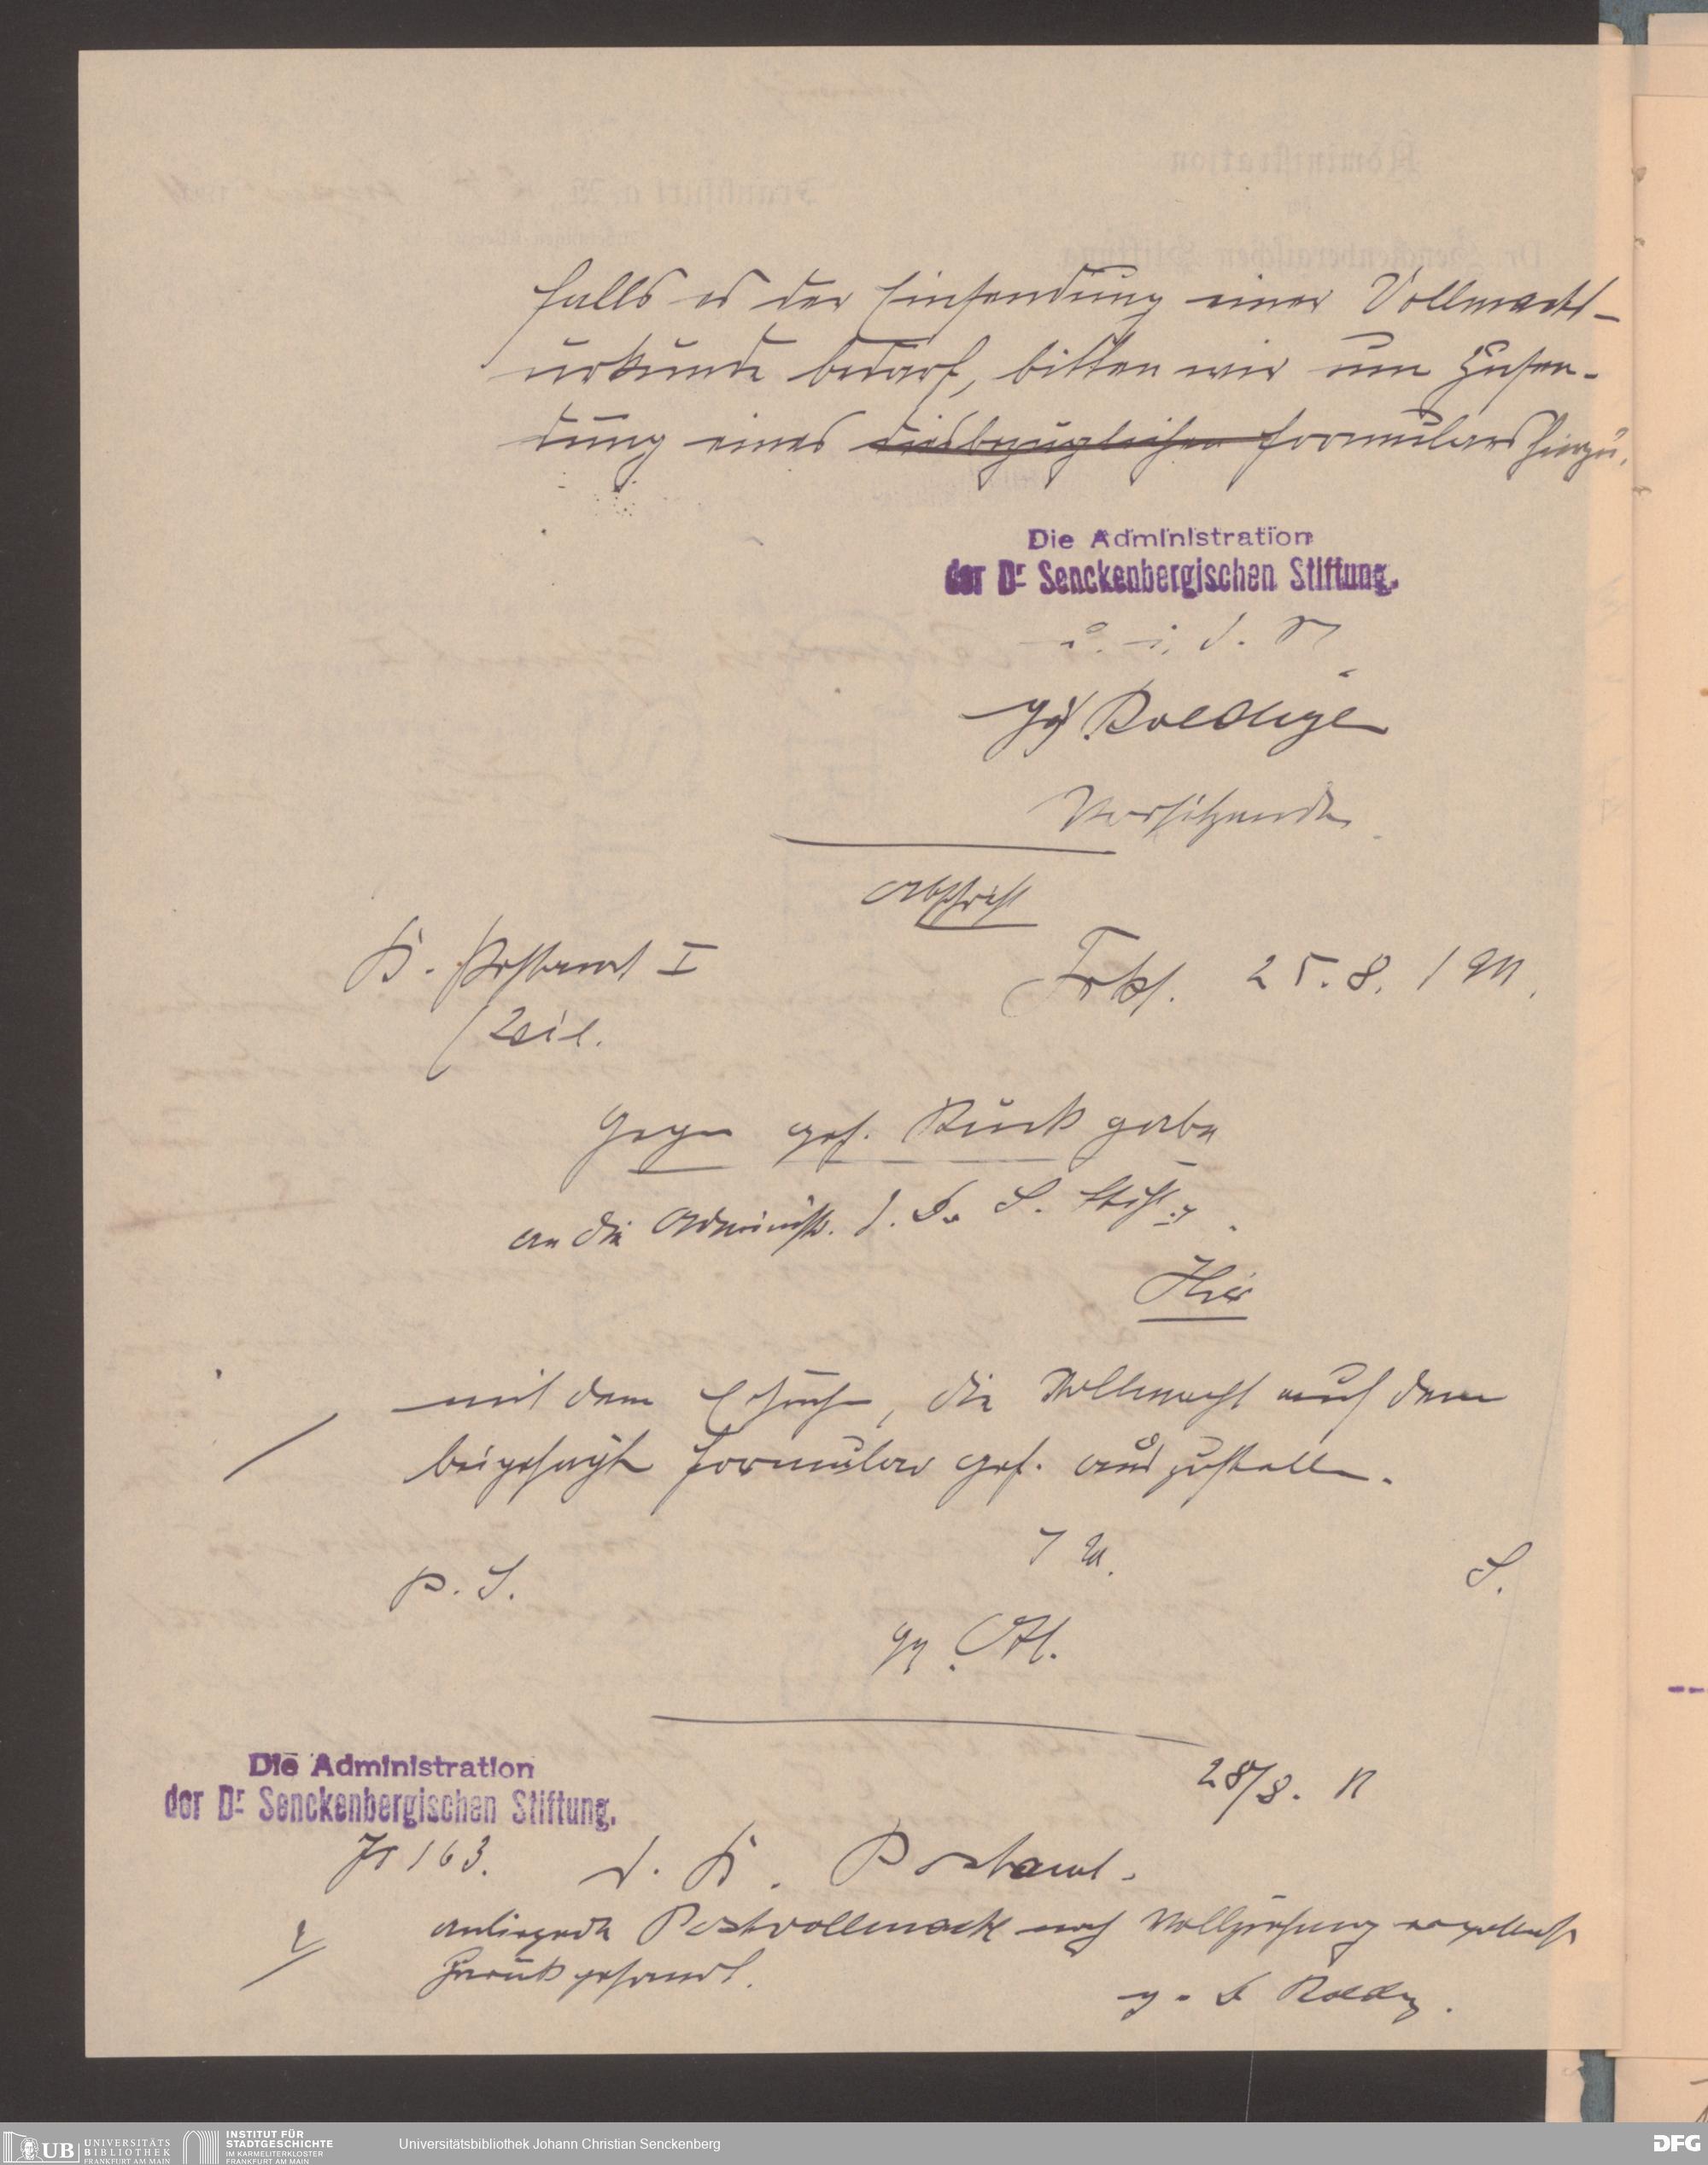 falls es der Einsendung einer Vollmacht-
urkunde bedarf, bitten wir um Zusen-
dung eines diesbezüglichen Formulars hierzu.
Die Administration
der Dr. Senckenbergischen Stiftung.
gez. Roediger
Vorsitzender
Abschrift
K. Postamt I
Frkf. 25.8.1911.
Zeil.
Gegen gef. Rückgabe
an die Administr. d. Dr. S. Stiftg.
Hier
mit dem Ersuchen, die Vollmacht auf dem
beigefügten Formular gef. auszustellen.
P. S.
S.
gez.
28/8. 11
Die Administration
der Dr. Senckenbergischen Stiftung.
163.
d. K. Postamt.
anliegende Postvollmacht nach Vollziehung ergebenst
zurückgesandt.
g. D Roedig.
UB UNIVERSITÄTS
BIBLIOTHEK
FRANKFURT AM MAIN
INSTITUT FÜR
STADTGESCHICHTE
IM KARMELITERKLOSTER
FRANKFURT AM MAIN
Universitätsbibliothek Johann Christian Senckenberg
DFG